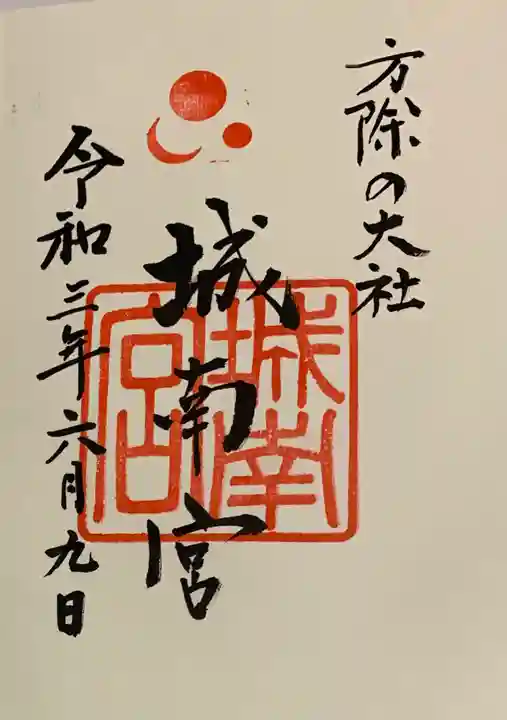 方除の大社
城南宮
城南宮
令和三年六月九日